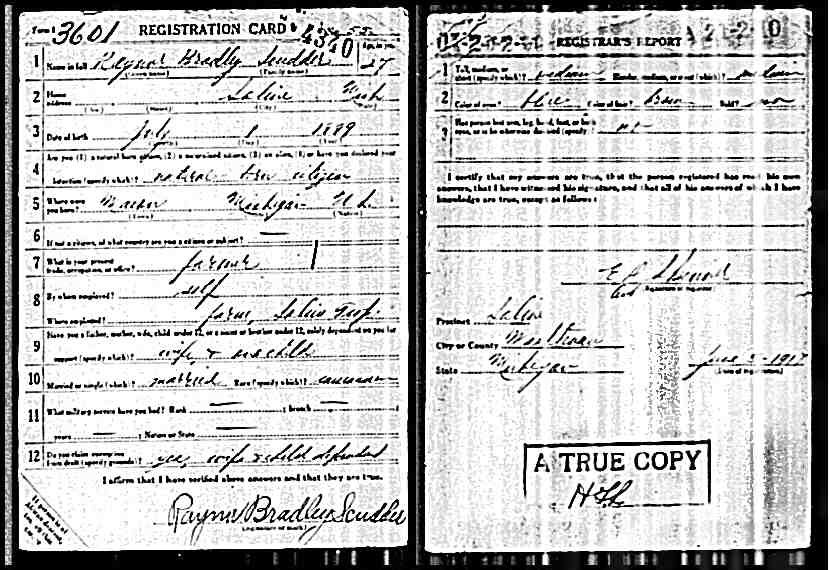 Form 1 3601 REGISTRATION CARD
1 Name in full Bradley Scudder Age, in yrs. 27
(Given name) (Family name)
2 Home address Saline Mich
(No.) (Street) (City) (State)
3 Date of birth July 1 1889
4 Are you (1) a natural born citizen, (2) a naturalized citizen, (3) an alien, (4) or have you declared your
intention (specify which)? natural born citizen
5 Where were you born? Macon Michigan U.S.
(Town) (State) (Nation)
6 If not a citizen, of what country are you a citizen or subject? —
7 What is your present trade, occupation, or office? farmer
8 By whom employed? self
Where employed? farm, Saline Twp.
9 Have you a father, mother, wife, child under 12, or a sister or brother under 12, solely dependent on you for
support (specify which)? wife + one child
10 Married or single (which)? married Race (specify which)? caucasian
11 What military service have you had? Rank — ; branch — ;
years — ; Nation or State —
12 Do you claim exemption from draft (specify grounds)? yes, wife & child dependent
I affirm that I have verified above answers and that they are true.
Raynor Bradley Scudder
REGISTRAR'S REPORT
1 Tall, medium, or short (specify which)? medium Slender, medium, or stout (which)? medium
2 Color of eyes? blue Color of hair? Brown Bald? no
3 Has person lost arm, leg, hand, foot, or both eyes, or is he otherwise disabled (specify)? no
I certify that my answers are true, that the person registered has read his own
answers, that I have witnessed his signature, and that all of his answers of which I have
knowledge are true, except as follows:
(Signature of registrar)
Precinct Saline
City or County Washtenaw
State Michigan June 5 - 1917
(Date of registration)
A TRUE COPY